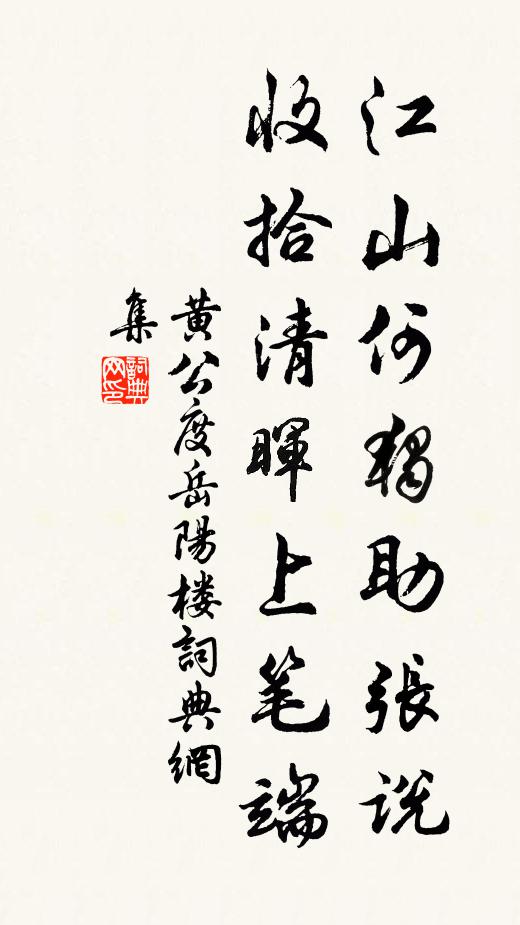 江山何独助張説
收拾清暉上笔端
黄公度岳陽楼詞典網
集
詞典網印